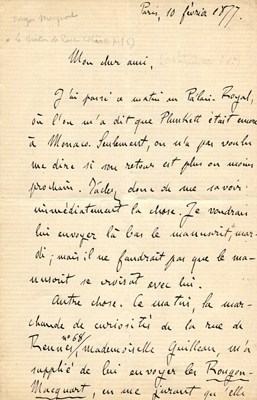 Paris, 10 février 1877.
Mon cher ami,
J'ai passé ce matin au Palais-Royal,
où l'on m'a dit que Plunkett était encore
à Monaco. Seulement, on n'a pas voulu
me dire si son retour est plus ou moins
prochain. Tâchez donc de me savoir
immédiatement la chose. Je voudrais
lui envoyer là bas le manuscrit, mar-
di; mais il ne faudrait pas que le ma-
nuscrit se croisât avec lui.
Autre chose. Ce matin, la mar-
chande de curiosités de la rue de
Rennes, n° 68, mademoiselle Guilleau m'a
supplié de lui envoyer les Rougon-
Macquart, en me jurant qu'elle